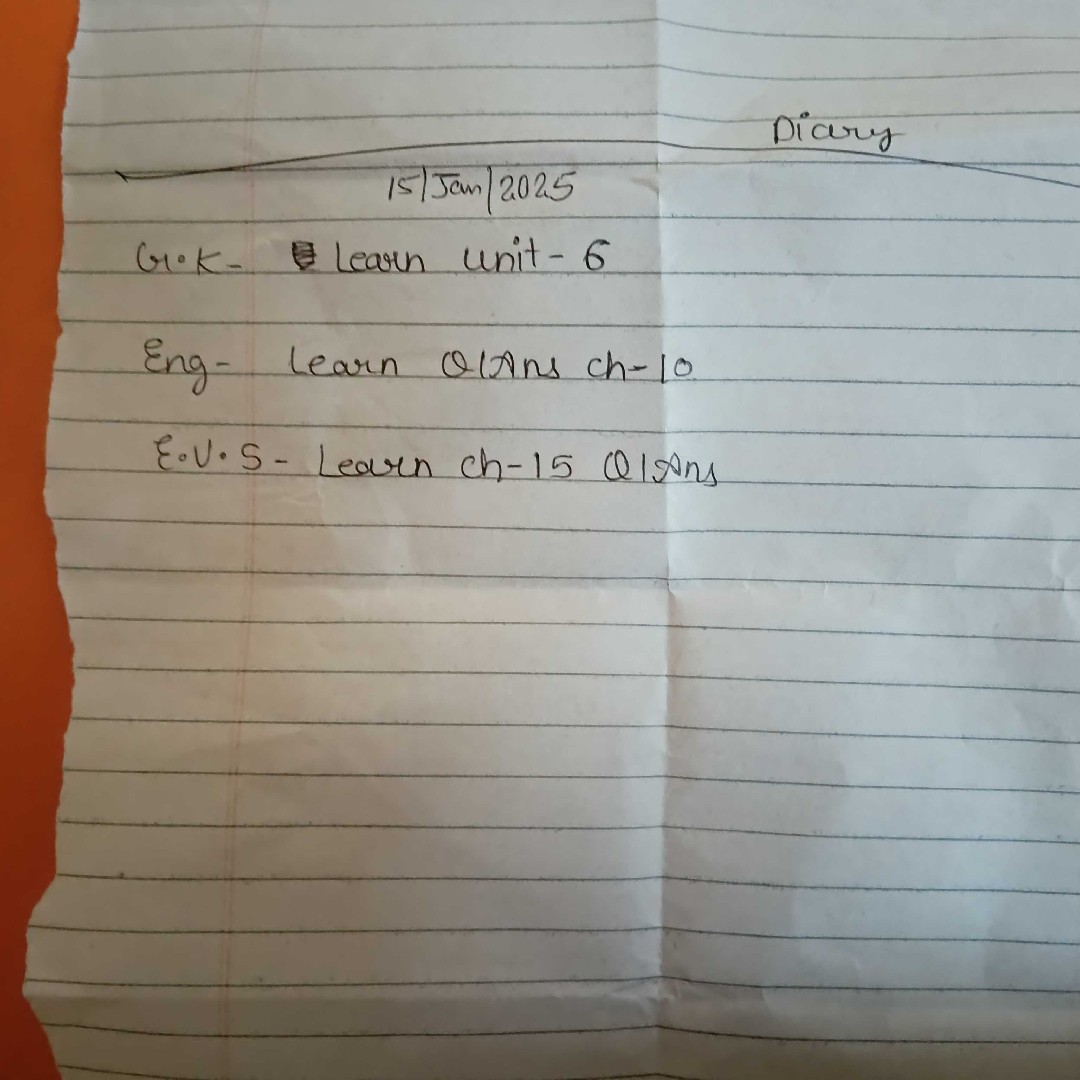 Diary
15/Jan/2025
G.K- Learn unit-6
Eng- Learn Q/Ans ch-10
E.V.S- Learn ch-15 Q/Ans